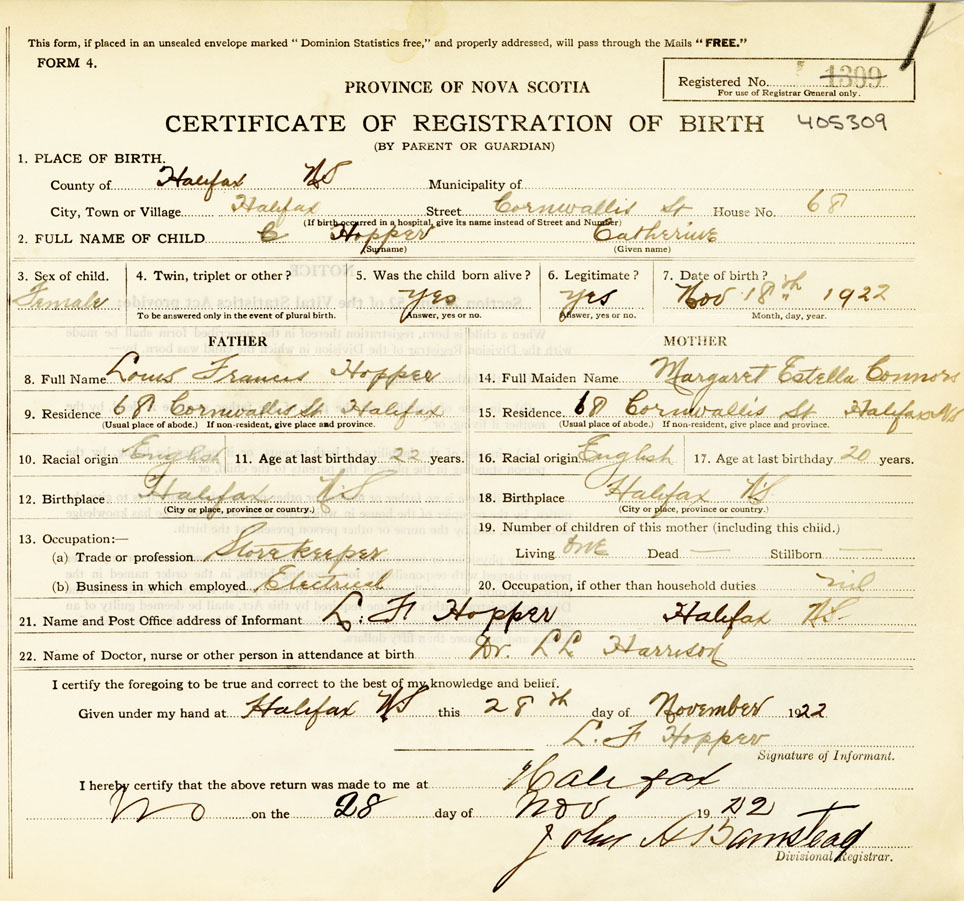 This form, if placed in an unsealed envelope marked "Dominion Statistics free," and properly addressed, will pass through the Mails "FREE."
FORM 4.
Registered No. 1309
For use of Registrar General only.
PROVINCE OF NOVA SCOTIA
CERTIFICATE OF REGISTRATION OF BIRTH 405309
(BY PARENT OR GUARDIAN)
1. PLACE OF BIRTH.
County of Halifax NS Municipality of
City, Town or Village Halifax Street Cornwallis St House No. 68
(If birth occurred in a hospital, give its name instead of Street and Number)
2. FULL NAME OF CHILD C Hopper Catherine
(Surname) (Given name)
3. Sex of child. 4. Twin, triplet or other? 5. Was the child born alive? 6. Legitimate? 7. Date of birth?
Female Yes Yes Nov 18th 1922
To be answered only in the event of plural birth. Answer, yes or no. Answer, yes or no. Month, day, year.
FATHER MOTHER
8. Full Name Louis Francis Hopper 14. Full Maiden Name Margaret Estella Connors
9. Residence 68 Cornwallis St Halifax 15. Residence 68 Cornwallis St Halifax NS
(Usual place of abode.) If non-resident, give place and province. (Usual place of abode.) If non-resident, give place and province.
10. Racial origin English 11. Age at last birthday 22 years. 16. Racial origin English 17. Age at last birthday 20 years.
12. Birthplace Halifax NS 18. Birthplace Halifax NS
(City or place, province or country.) (City or place, province or country.)
13. Occupation:— 19. Number of children of this mother (including this child.)
(a) Trade or profession Storekeeper Living one Dead — Stillborn —
(b) Business in which employed Electrical 20. Occupation, if other than household duties nil
21. Name and Post Office address of Informant L. F Hopper Halifax NS.
22. Name of Doctor, nurse or other person in attendance at birth Dr. LL Harrison
I certify the foregoing to be true and correct to the best of my knowledge and belief.
Given under my hand at Halifax NS this 28th day of November 1922
L. F Hopper
Signature of Informant.
I hereby certify that the above return was made to me at Halifax
on the 28 day of Nov 1922
John A Barnstead
Divisional Registrar.